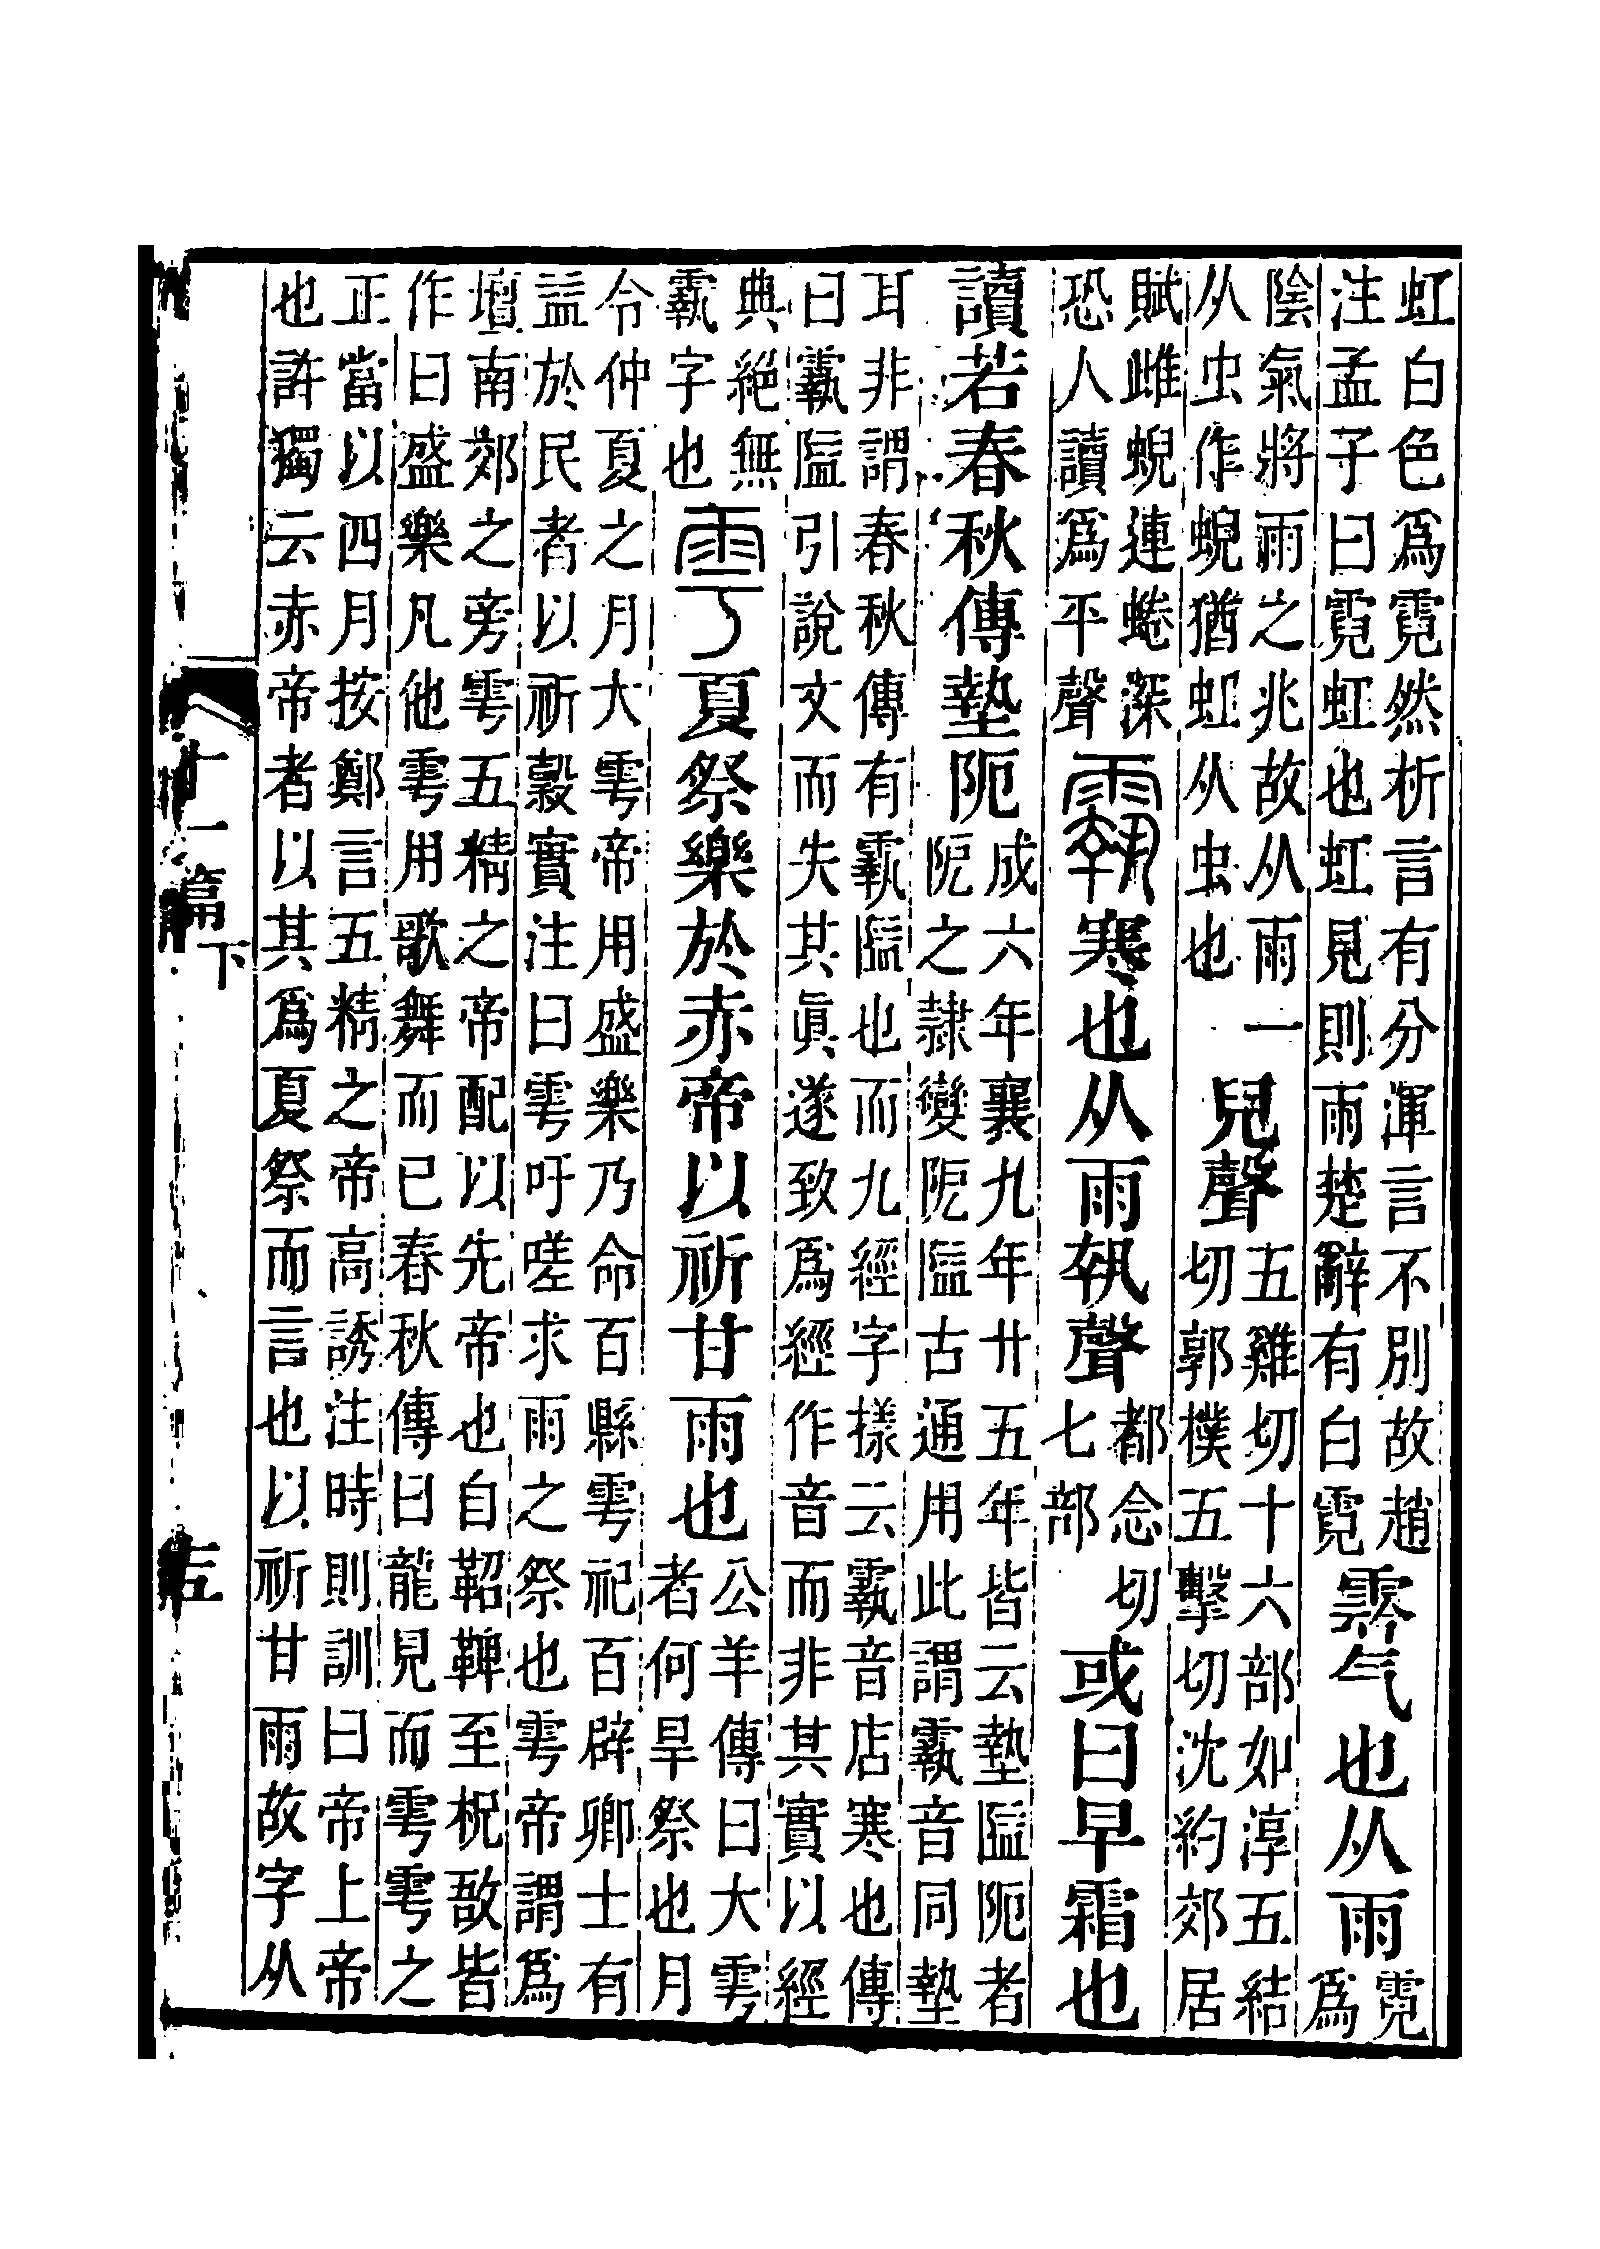 虹白色爲霓然析言有分渾言不別故趙注孟子曰霓虹也虹見則雨楚辭有白霓霠气也从雨霓爲
陰氣將雨之兆故从雨一从虫作蜺猶虹从虫也兒聲五雞切十六部如淳五結切郭樸五擊切沈約郊居
賦雌蜺連蜷深恐人讀爲平聲䨴寒也从雨執聲都念切七部或曰早霜也
讀若春秋傳墊阨成六年襄九年廿五年皆云墊隘阨者阸之隷變阸隘古通用此謂䨴音同墊
耳非謂春秋傳有䨴隘也而九經字樣云䨴音店寒也傳曰䨴隘引說文而失其眞遂致爲經作音而非其實以經
典絕無䨴字也雩夏祭樂於赤帝以祈甘雨也公羊傳曰大雩者何旱祭也月
令仲夏之月大雩帝用盛樂乃命百縣雩祀百辟卿士有益於民者以祈穀實注曰雩吁嗟求雨之祭也雩帝謂爲
壇南郊之旁雩五精之帝配以先帝也自鞀鞞至柷敔皆作曰盛樂凡他雩用歌舞而已春秋傳曰龍見而雩雩之
正當以四月按鄭言五精之帝高誘注時則訓曰帝上帝也許獨云赤帝者以其爲夏祭而言也以祈甘雨故字从
十一篇下